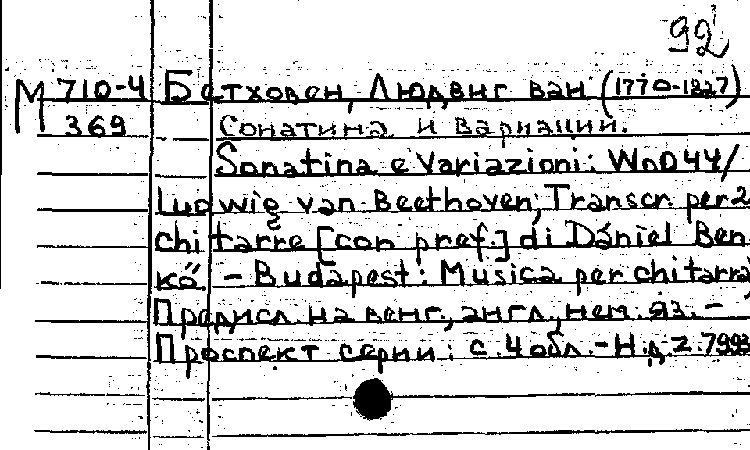 92
М 710-4 Бетховен, Людвиг ван (1770-1827)
369 Сонатина и вариации.
Sonatina e Variazioni: WoO 44/
Ludwig van Beethoven; Transcr. per 2
chitarre [con pref.] di Dániel Ben-
kő. - Budapest: Musica per chitarra,
Предисл. на венг., англ., нем. яз. -
Проспект серии: с. 4 обл. - Н.д. Z. 7993